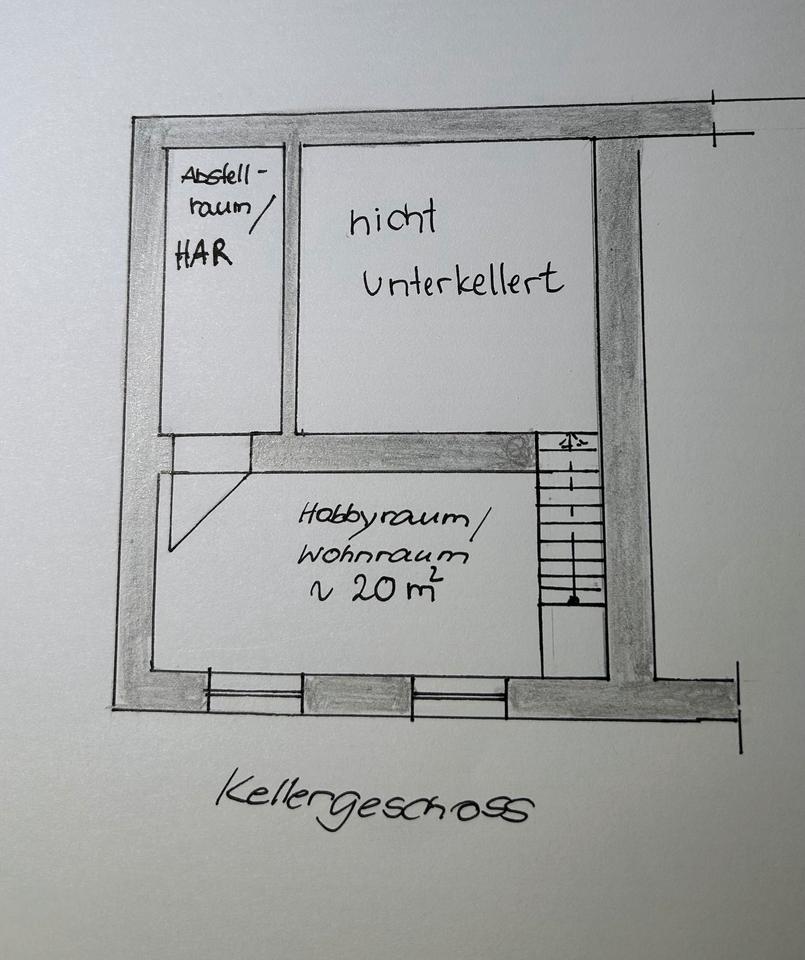 Abstell-
raum/
HAR
nicht
unterkellert
Hobbyraum/
Wohnraum
~ 20 m²
Kellergeschoss